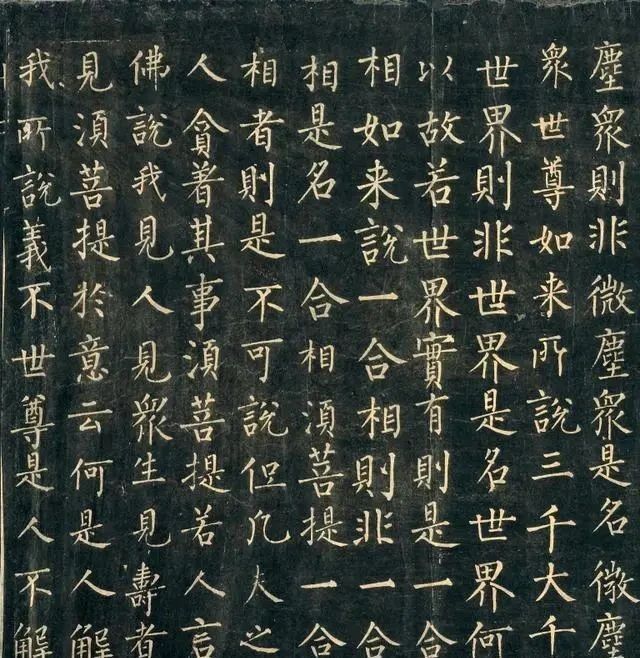 塵衆則非微塵衆是名微塵
衆世尊如来所說三千大千
世界則非世界是名世界何
以故若世界實有則是一合
相如来說一合相則非一合
相是名一合相湏菩提一合
相者則是不可說但凡夫之
人貪著其事湏菩提若人言
佛說我見人見衆生見壽者
見湏菩提於意云何是人解
我所說義不世尊是人不解